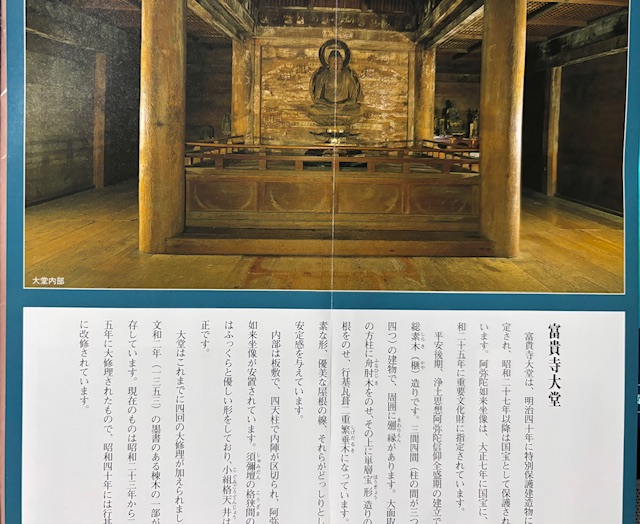 大堂内部
富貴寺大堂
富貴寺大堂は、明治四十年に特別保護建造物に
定され、昭和二十七年以降は国宝として保護され
います。阿弥陀如来坐像は、大正七年に国宝に、
和二十五年に重要文化財に指定されています。
平安後期、浄土思想阿弥陀信仰全盛期の建立で
総素木（榧）造りです。三間四間（柱の間が三つ
四つ）の建物で、周囲に廻縁があります。大面取
の方柱に舟肘木をのせ、その上に単層宝形造りの
根をのせ、行基瓦葺二重繁垂木になっています。
素な形、優美な屋根の線、それらがどっしりとし
安定感を与えています。
内部は板敷で、四天柱で内陣が区切られ、阿弥
如来坐像が安置されています。須弥壇の格狭間の
はふっくらと優しい形をしており、小組格天井は
正です。
大堂はこれまでに四回の大修理が加えられまし
文和二年（一三五三）の墨書のある棟木の一部が
存しています。現在のものは昭和二十三年から二
五年に大修理されたもので、昭和四十年には行基
に改修されています。